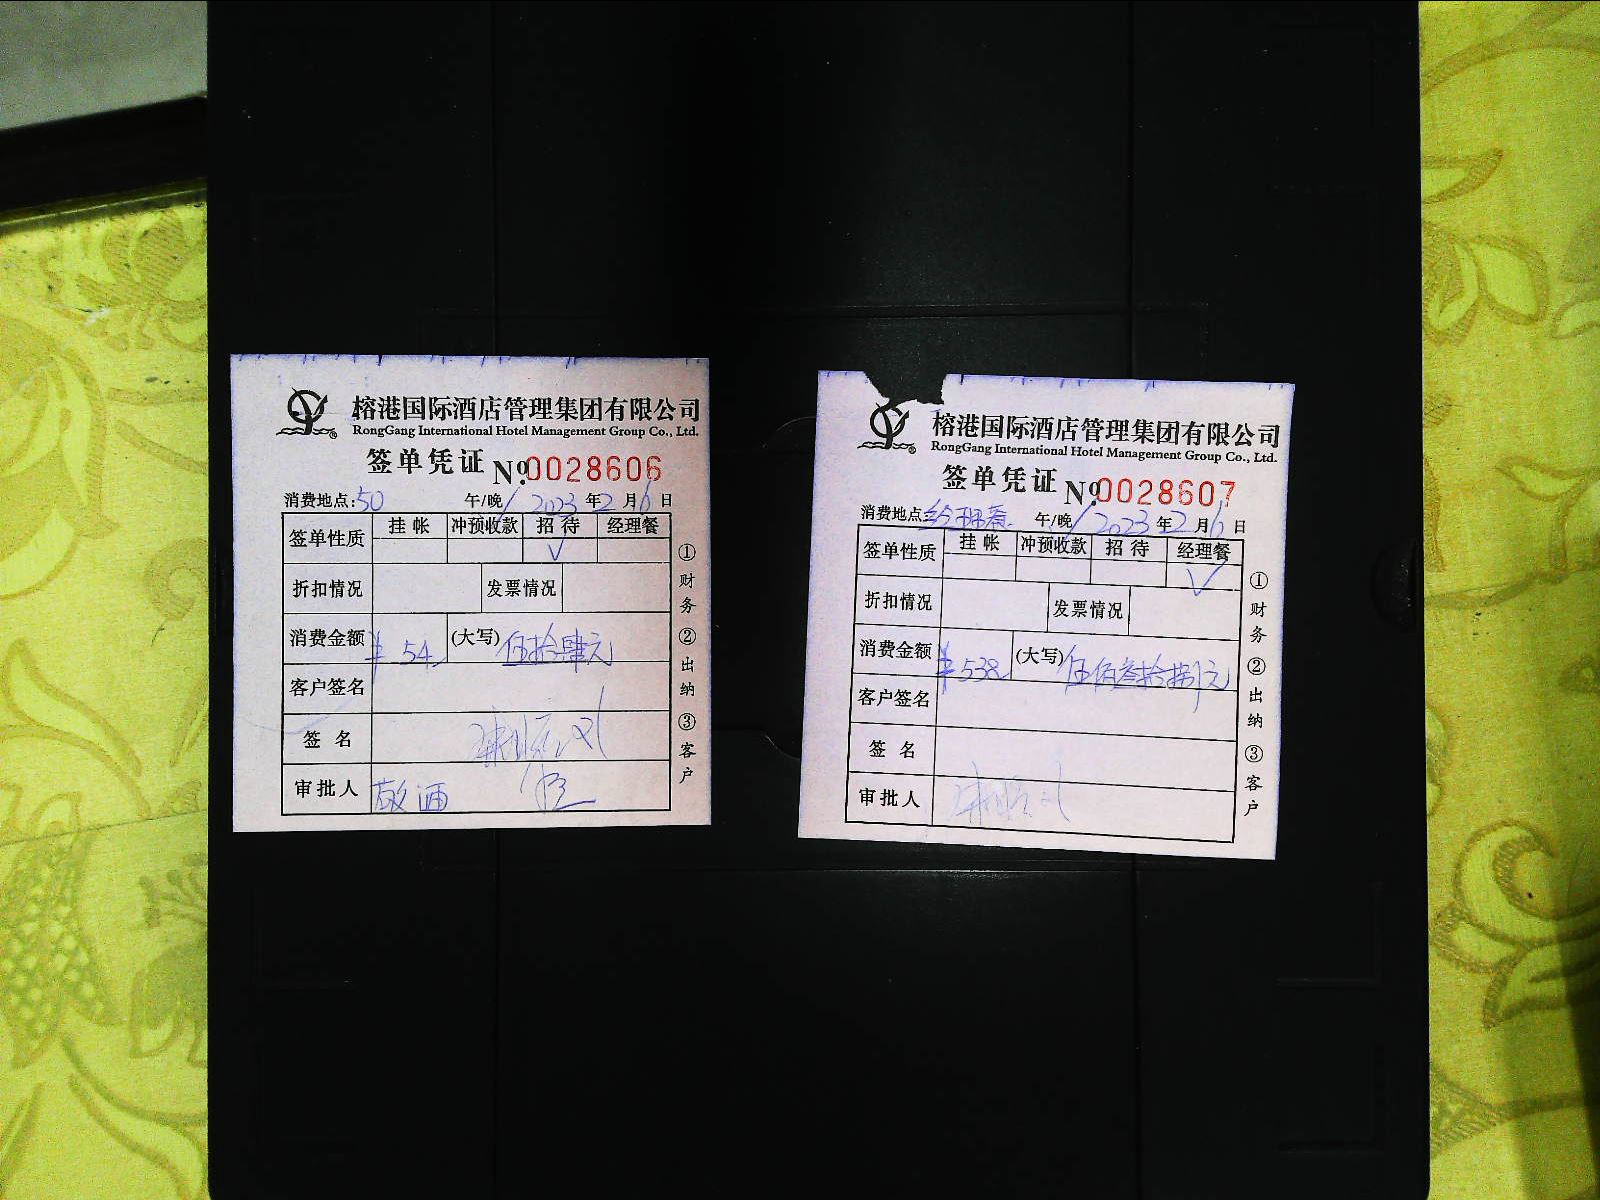 榕港国际酒店管理集团有限公司
RongGang International Hotel Management Group Co., Ltd.
签单凭证 № 0028606
消费地点:50 午/晚 2023年2月6日
签单性质 挂帐 冲预收款 招待 经理餐
√
折扣情况 发票情况
消费金额 ¥54 (大写) 伍拾肆元
客户签名
签名
审批人 敬酒
①财务 ②出纳 ③客户
榕港国际酒店管理集团有限公司
RongGang International Hotel Management Group Co., Ltd.
签单凭证 № 0028607
消费地点: 午/晚 2023年2月6日
签单性质 挂帐 冲预收款 招待 经理餐
√
折扣情况 发票情况
消费金额 ¥538 (大写) 伍佰叁拾捌元
客户签名
签名
审批人
①财务 ②出纳 ③客户